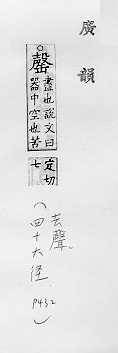 廣韻
○罄
盡也說文曰
器中空也苦
定切
七
(去聲、
四十六徑. P432)